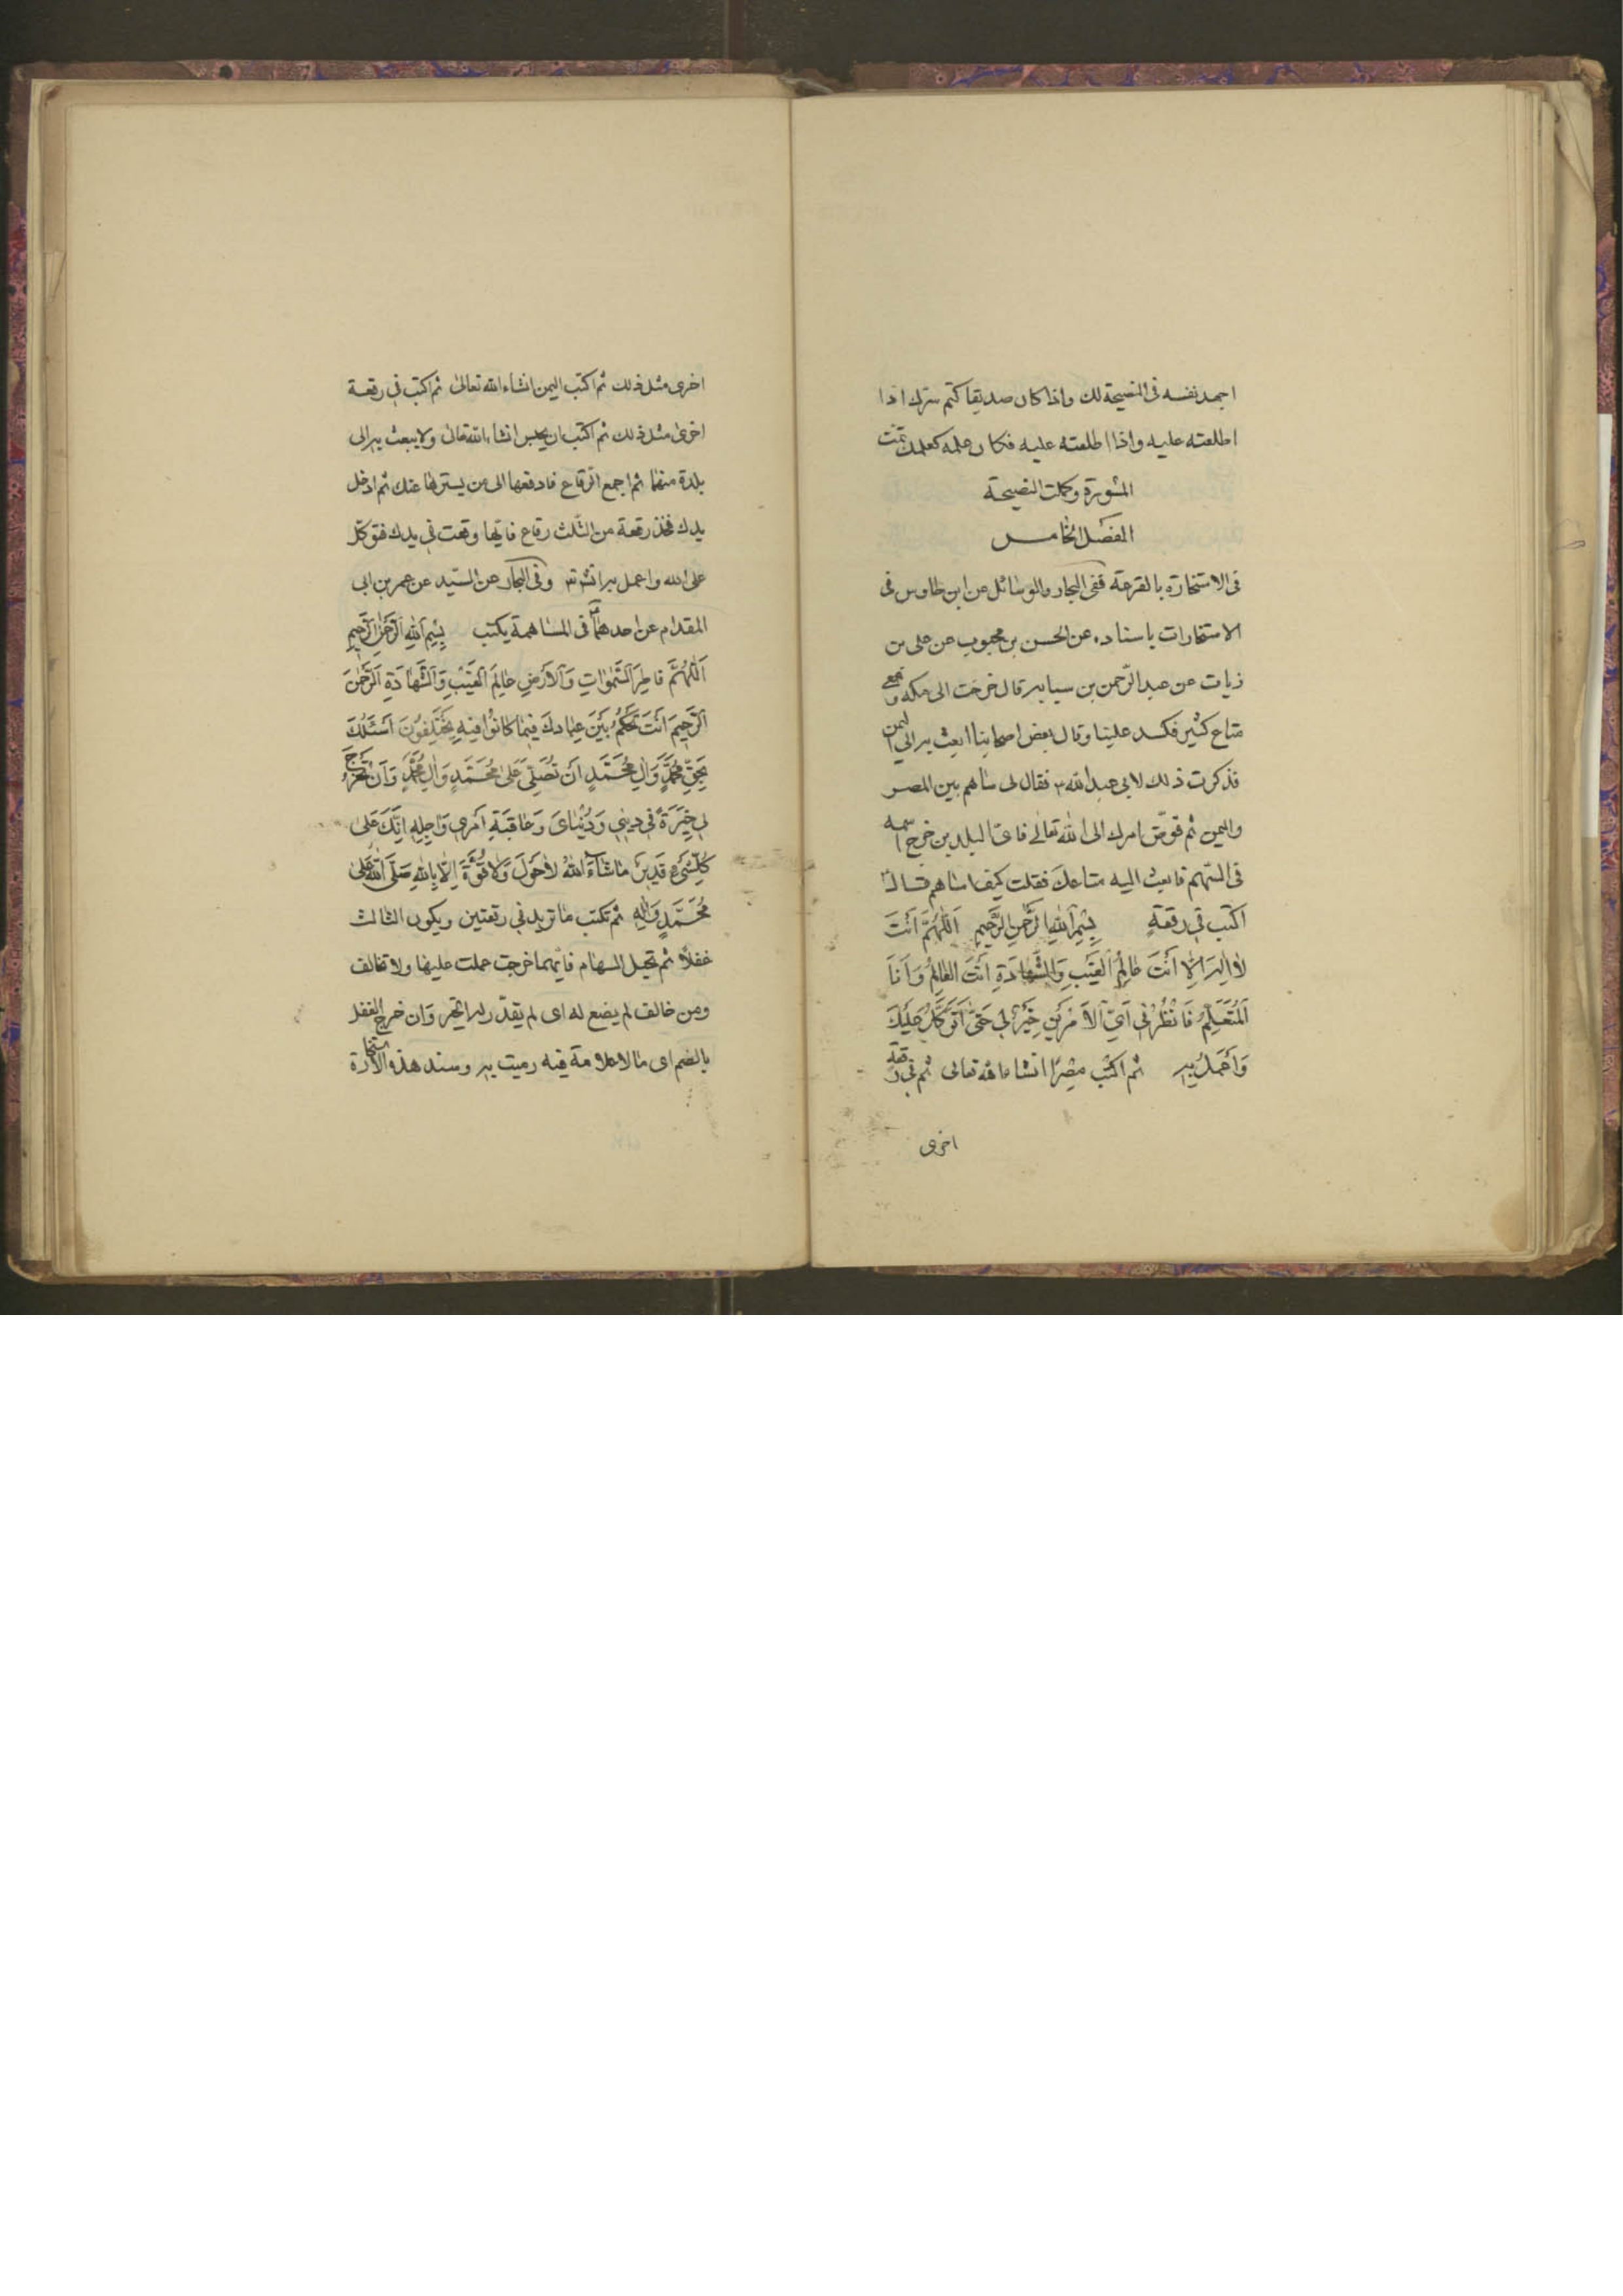 اجهد نفسه فى النصيحة لك واذا كان صديقا كتم سرّك اذا
اطلعته عليه واذا اطلعته عليه فكان علمه كعلمك تمّت
المشورة وكملت النصيحة
الفصل الخامس
فى الاستخارة بالقرعة ففى البحار والوسائل عن ابن طاوس فى
الاستخارات باسناده عن الحسن بن محبوب عن على بن
رئاب عن عبد الرّحمن بن سيابه قال خرجت الى مكه ومعى
متاع كثير فكسد علينا وقال بعض اصحابنا ابعث به الى اليمن
فذكرت ذلك لابى عبد الله ع فقال لى ساهم بين المصر
واليمن ثم فوّض امرك الى الله تعالى فاىّ البلدين خرج اسمه
فى السّهم فابعث اليه متاعك فقلت كيف اساهم قال
اكتب فى رقعةٍ بِسْمِ اللهِ الرَّحْمٰنِ الرَّحِيمِ اَللّٰهُمَّ اَنْتَ
لٰا اِلٰهَ اِلّٰا اَنْتَ عٰالِمُ الْغَيْبِ وَالشَّهٰادَةِ اَنْتَ الْعٰالِمُ وَاَنَا
الْمُتَعَلِّمُ فَانْظُرْ فى اَىِّ الْاَمْرَيْنِ خَيْرٌ لى حَتّىٰ اَتَوَكَّلَ عَلَيْكَ
وَاَعْمَلُ بِهِ ثم اكتب مِصْرًا انشاءالله تعالى ثم فى رقعة
اخرى
اخرى مثل ذلك ثم اكتب اليمن انشاءالله تعالىٰ ثم اكتب فى رقعة
اخرىٰ مثل ذلك ثم اكتب ان يحبس انشاءالله تعالى ولا يبعث به الى
بلدة منهما ثم اجمع الرّقاع فادفعها الى من يسترها عنك ثم ادخل
يدك فخذ رقعة من الثّلث رقاع فايّها وقعت فى يدك فتوكّل
على الله واعمل بها انش تع وفى البحار عن السّيد عن عمر بن ابى
المقدام عن احدهما ع فى المساهمة يكتب بِسْمِ اللهِ الرَّحْمٰنِ الرَّحِيمِ
اَللّٰهُمَّ فاطِرَ السَّمٰوٰاتِ وَالْاَرْضِ عٰالِمَ الْغَيْبِ وَالشَّهٰادَةِ الرَّحْمٰنَ
الرَّحِيمَ اَنْتَ تَحْكُمُ بَيْنَ عِبٰادِكَ فِيمٰا كانُوا فِيهِ يَخْتَلِفُونَ اَسْئَلُكَ
بِحَقِّ مُحَمَّدٍ وَاٰلِ مُحَمَّدٍ اَنْ تُصَلِّىَ عَلىٰ مُحَمَّدٍ وَاٰلِ مُحَمَّدٍ وَاَنْ تُخْرِجَ
لى خِيَرَةً فى دينى وَدُنْيٰاىَ وَعٰاقِبَةِ اَمْرى وَاٰجِلِهِ اِنَّكَ عَلىٰ
كُلِّ شَىْءٍ قَدِيرٌ مٰا شٰاءَ اللهُ لٰا حَوْلَ وَلٰا قُوَّةَ اِلّٰا بِاللهِ صَلَّى اللهُ عَلىٰ
مُحَمَّدٍ وَاٰلِهِ ثم تكتب ما تريد فى رقعتين ويكون الثالث
غفلًا ثم تجيل السهام فايّهما خرجت عملت عليها ولا تخالف
ومن خالف لم يضع له اى لم يقدّر له الخير وان خرج الغفل
بالضم اى ما لا علامة فيه رميت به وسند هذه الاستخارة